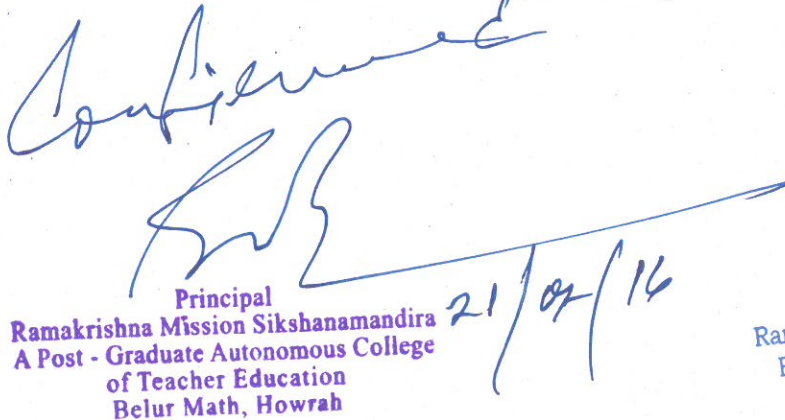 Confirmed
21/02/16
Principal
Ramakrishna Mission Sikshanamandira
A Post - Graduate Autonomous College
of Teacher Education
Belur Math, Howrah
Ra